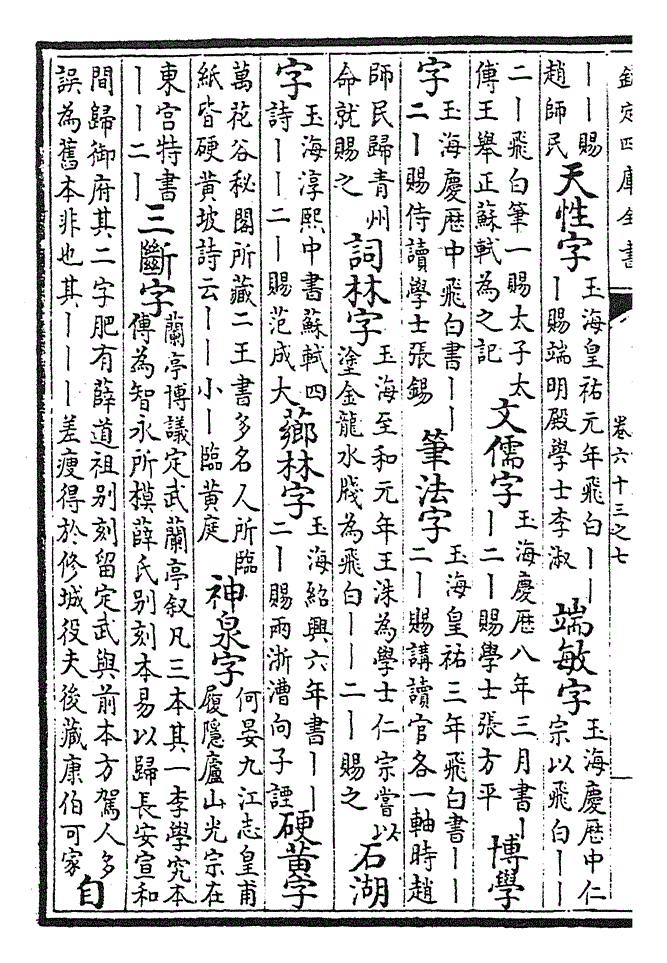 欽定四庫全書 卷六十三之七
丨丨賜趙師民 天性字 玉海皇祐元年飛白丨丨丨賜端明殿學士李淑 端敏字 玉海慶厯中仁宗以飛白丨丨
二丨飛白筆一賜太子太傅王舉正蘇軾為之記 文儒字 玉海慶厯八年三月書丨丨二丨賜學士張方平 博學
字 玉海慶厯中飛白書丨丨二丨賜侍讀學士張錫 筆法字 玉海皇祐三年飛白書丨丨二丨賜講讀官各一軸時趙
師民歸青州命就賜之 詞林字 玉海至和元年王洙為學士仁宗嘗以塗金龍水牋為飛白丨丨二丨賜之 石湖
字 玉海淳熙中書蘇軾四詩丨丨二丨賜范成大 薌林字 玉海紹興六年書丨丨二丨賜兩浙漕向子諲 硬黃字
萬花谷秘閣所藏二王書多名人所臨紙皆硬黃坡詩云丨丨小丨臨黃庭 神泉字 何晏九江志皇甫履隱廬山光宗在
東宮特書丨丨二丨 三斷字 蘭亭博議定武蘭亭叙凡三本其一李學究本傳為智永所模薛氏別刻本易以歸長安宣和
間歸御府其二字肥有薛道祖別刻留定武與前本方駕人多誤為舊本非也其丨丨丨差瘦得於修城役夫後藏康伯可家 自